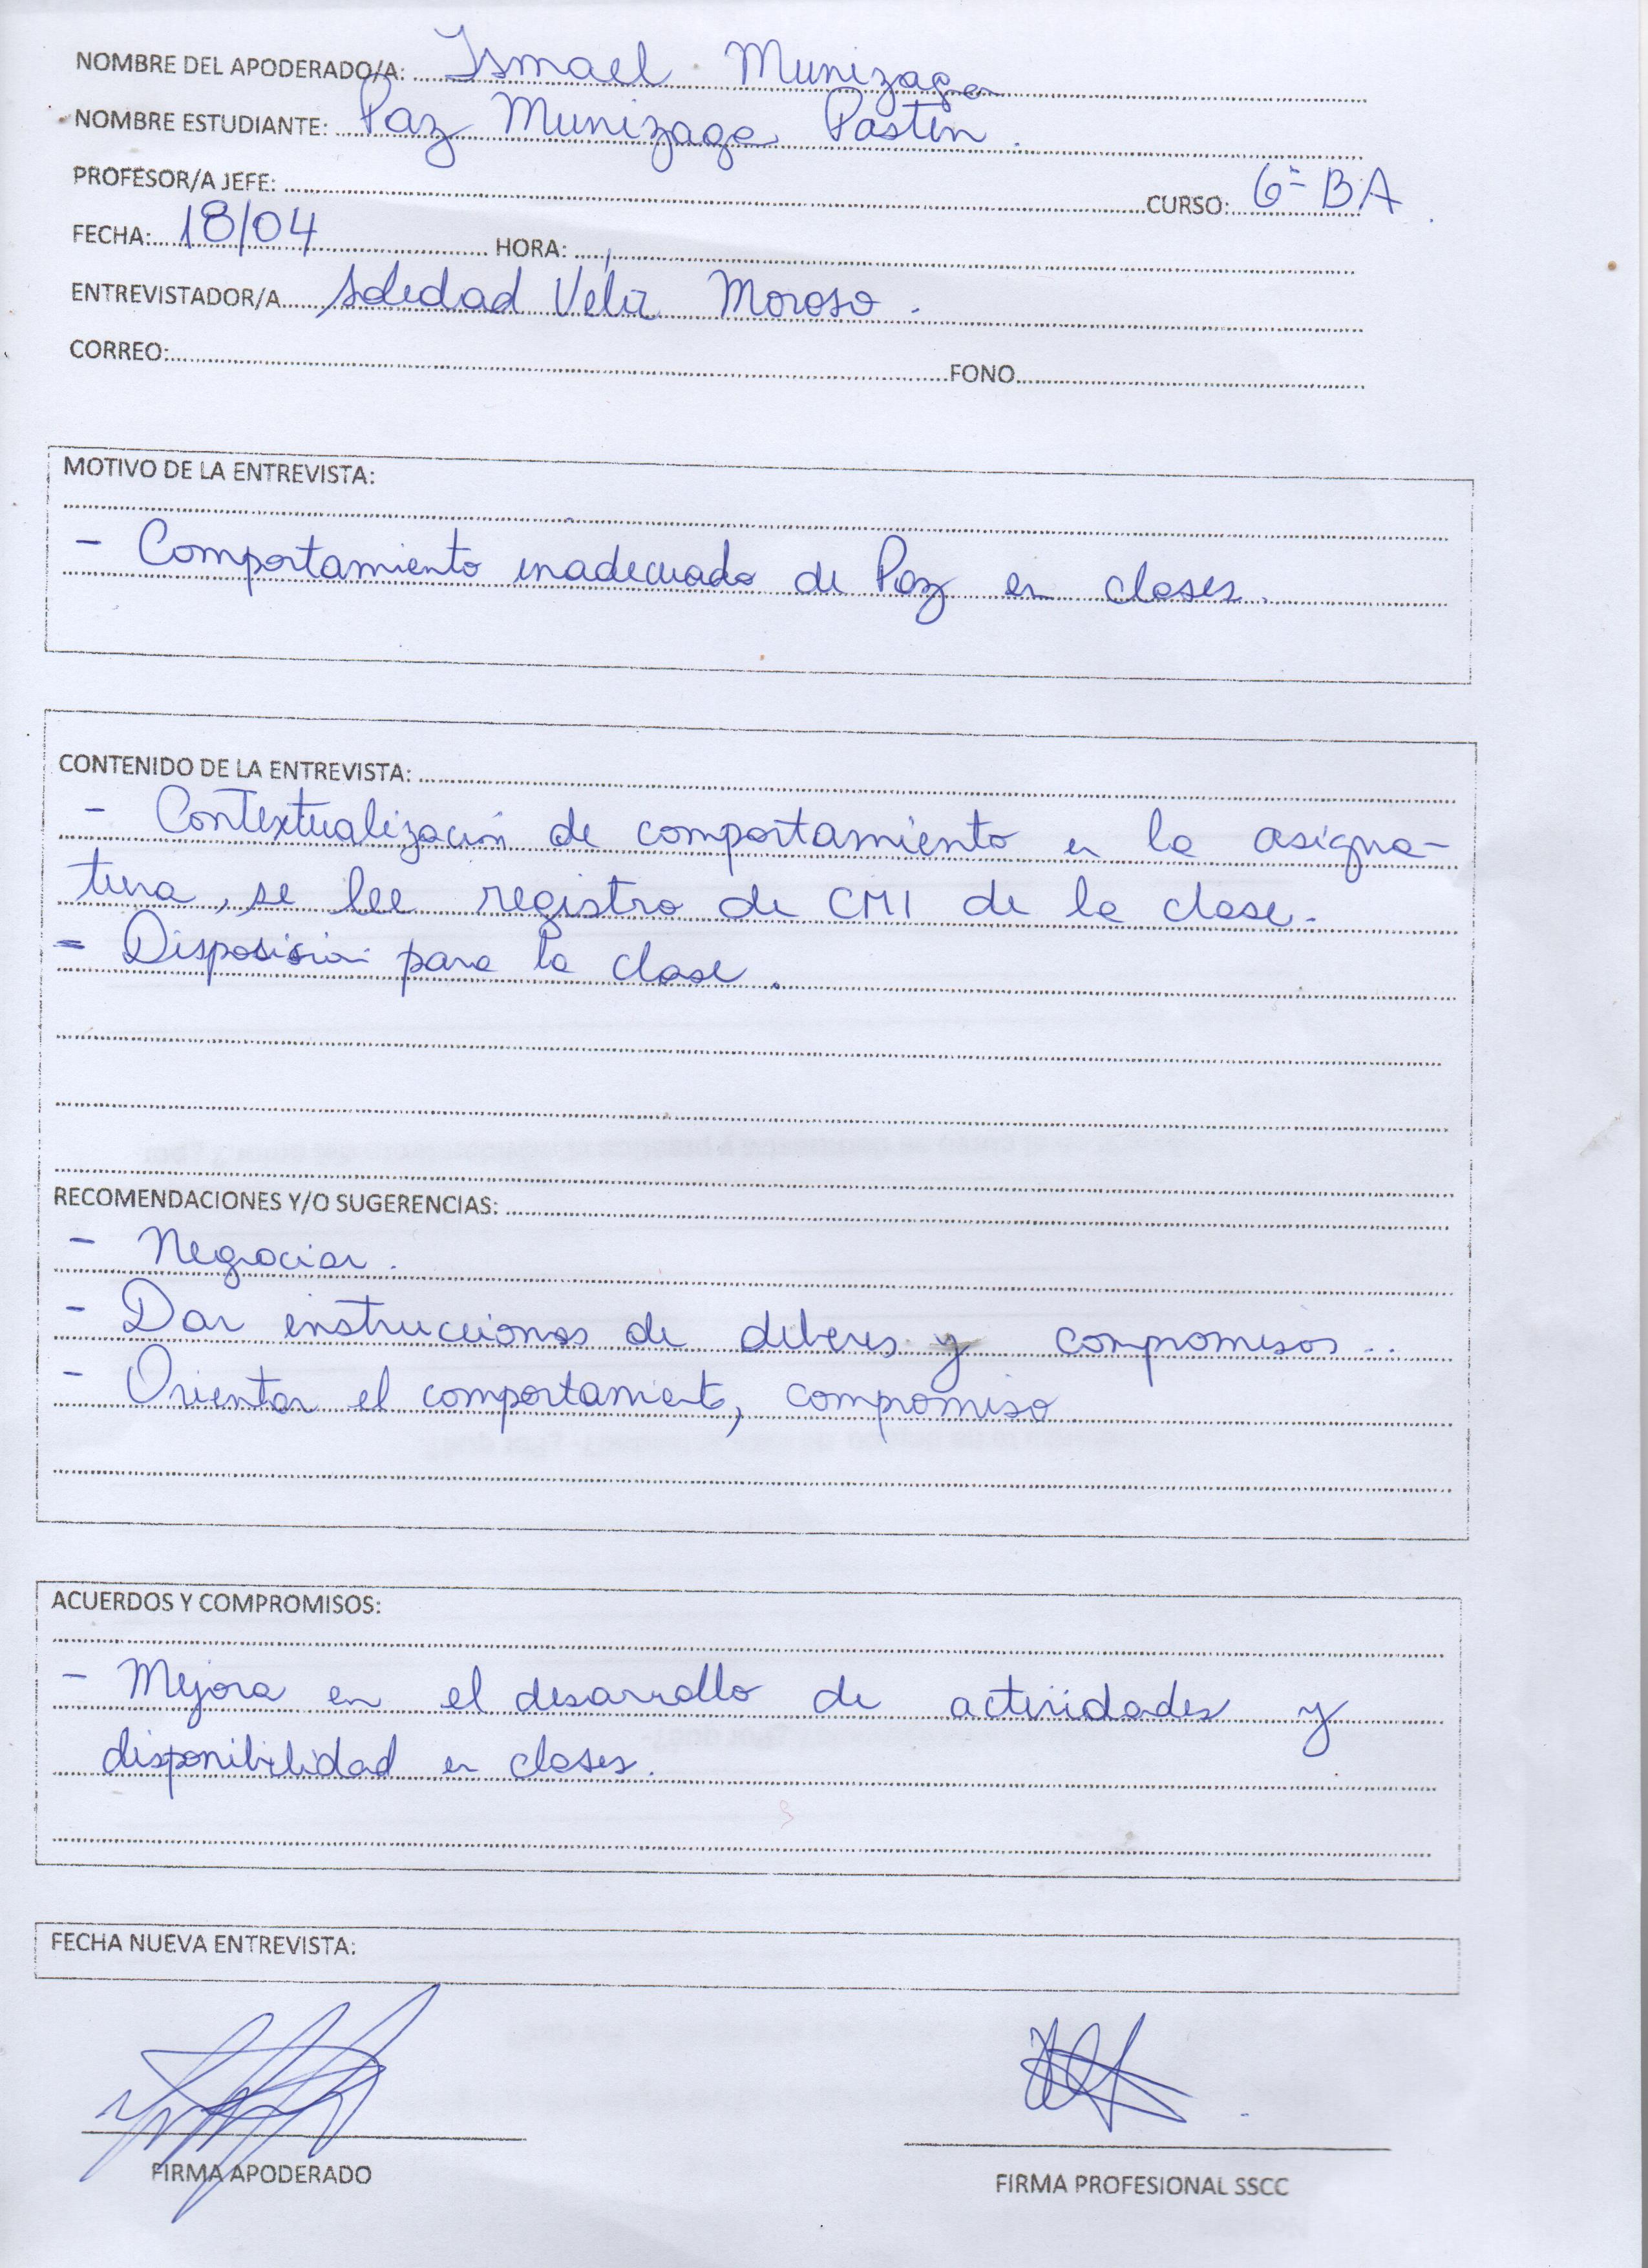 NOMBRE DEL APODERADO/A: Ismael Munizaga
NOMBRE ESTUDIANTE: Paz Munizaga Pastén.
PROFESOR/A JEFE: CURSO: 6º BA.
FECHA: 18/04 HORA:
ENTREVISTADOR/A Soledad Véliz Moroso.
CORREO: FONO
MOTIVO DE LA ENTREVISTA:
- Comportamiento inadecuado de Paz en clases.
CONTENIDO DE LA ENTREVISTA:
- Contextualización de comportamiento en la asigna-
tura, se lee registro de CMI de la clase.
- Disposición para la clase.
RECOMENDACIONES Y/O SUGERENCIAS:
- Negociar.
- Dar instrucciones de deberes y compromisos..
- Orientar el comportamiento, compromiso
ACUERDOS Y COMPROMISOS:
- Mejora en el desarrollo de actividades y
disponibilidad en clases.
FECHA NUEVA ENTREVISTA:
FIRMA APODERADO
FIRMA PROFESIONAL SSCC